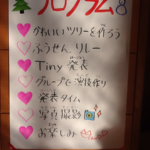 プログラム
かわいいツリーを作ろう
ふうせんリレー
Tiny 発表
グループで演技作り
発表タイム
写真撮影
お楽しみ